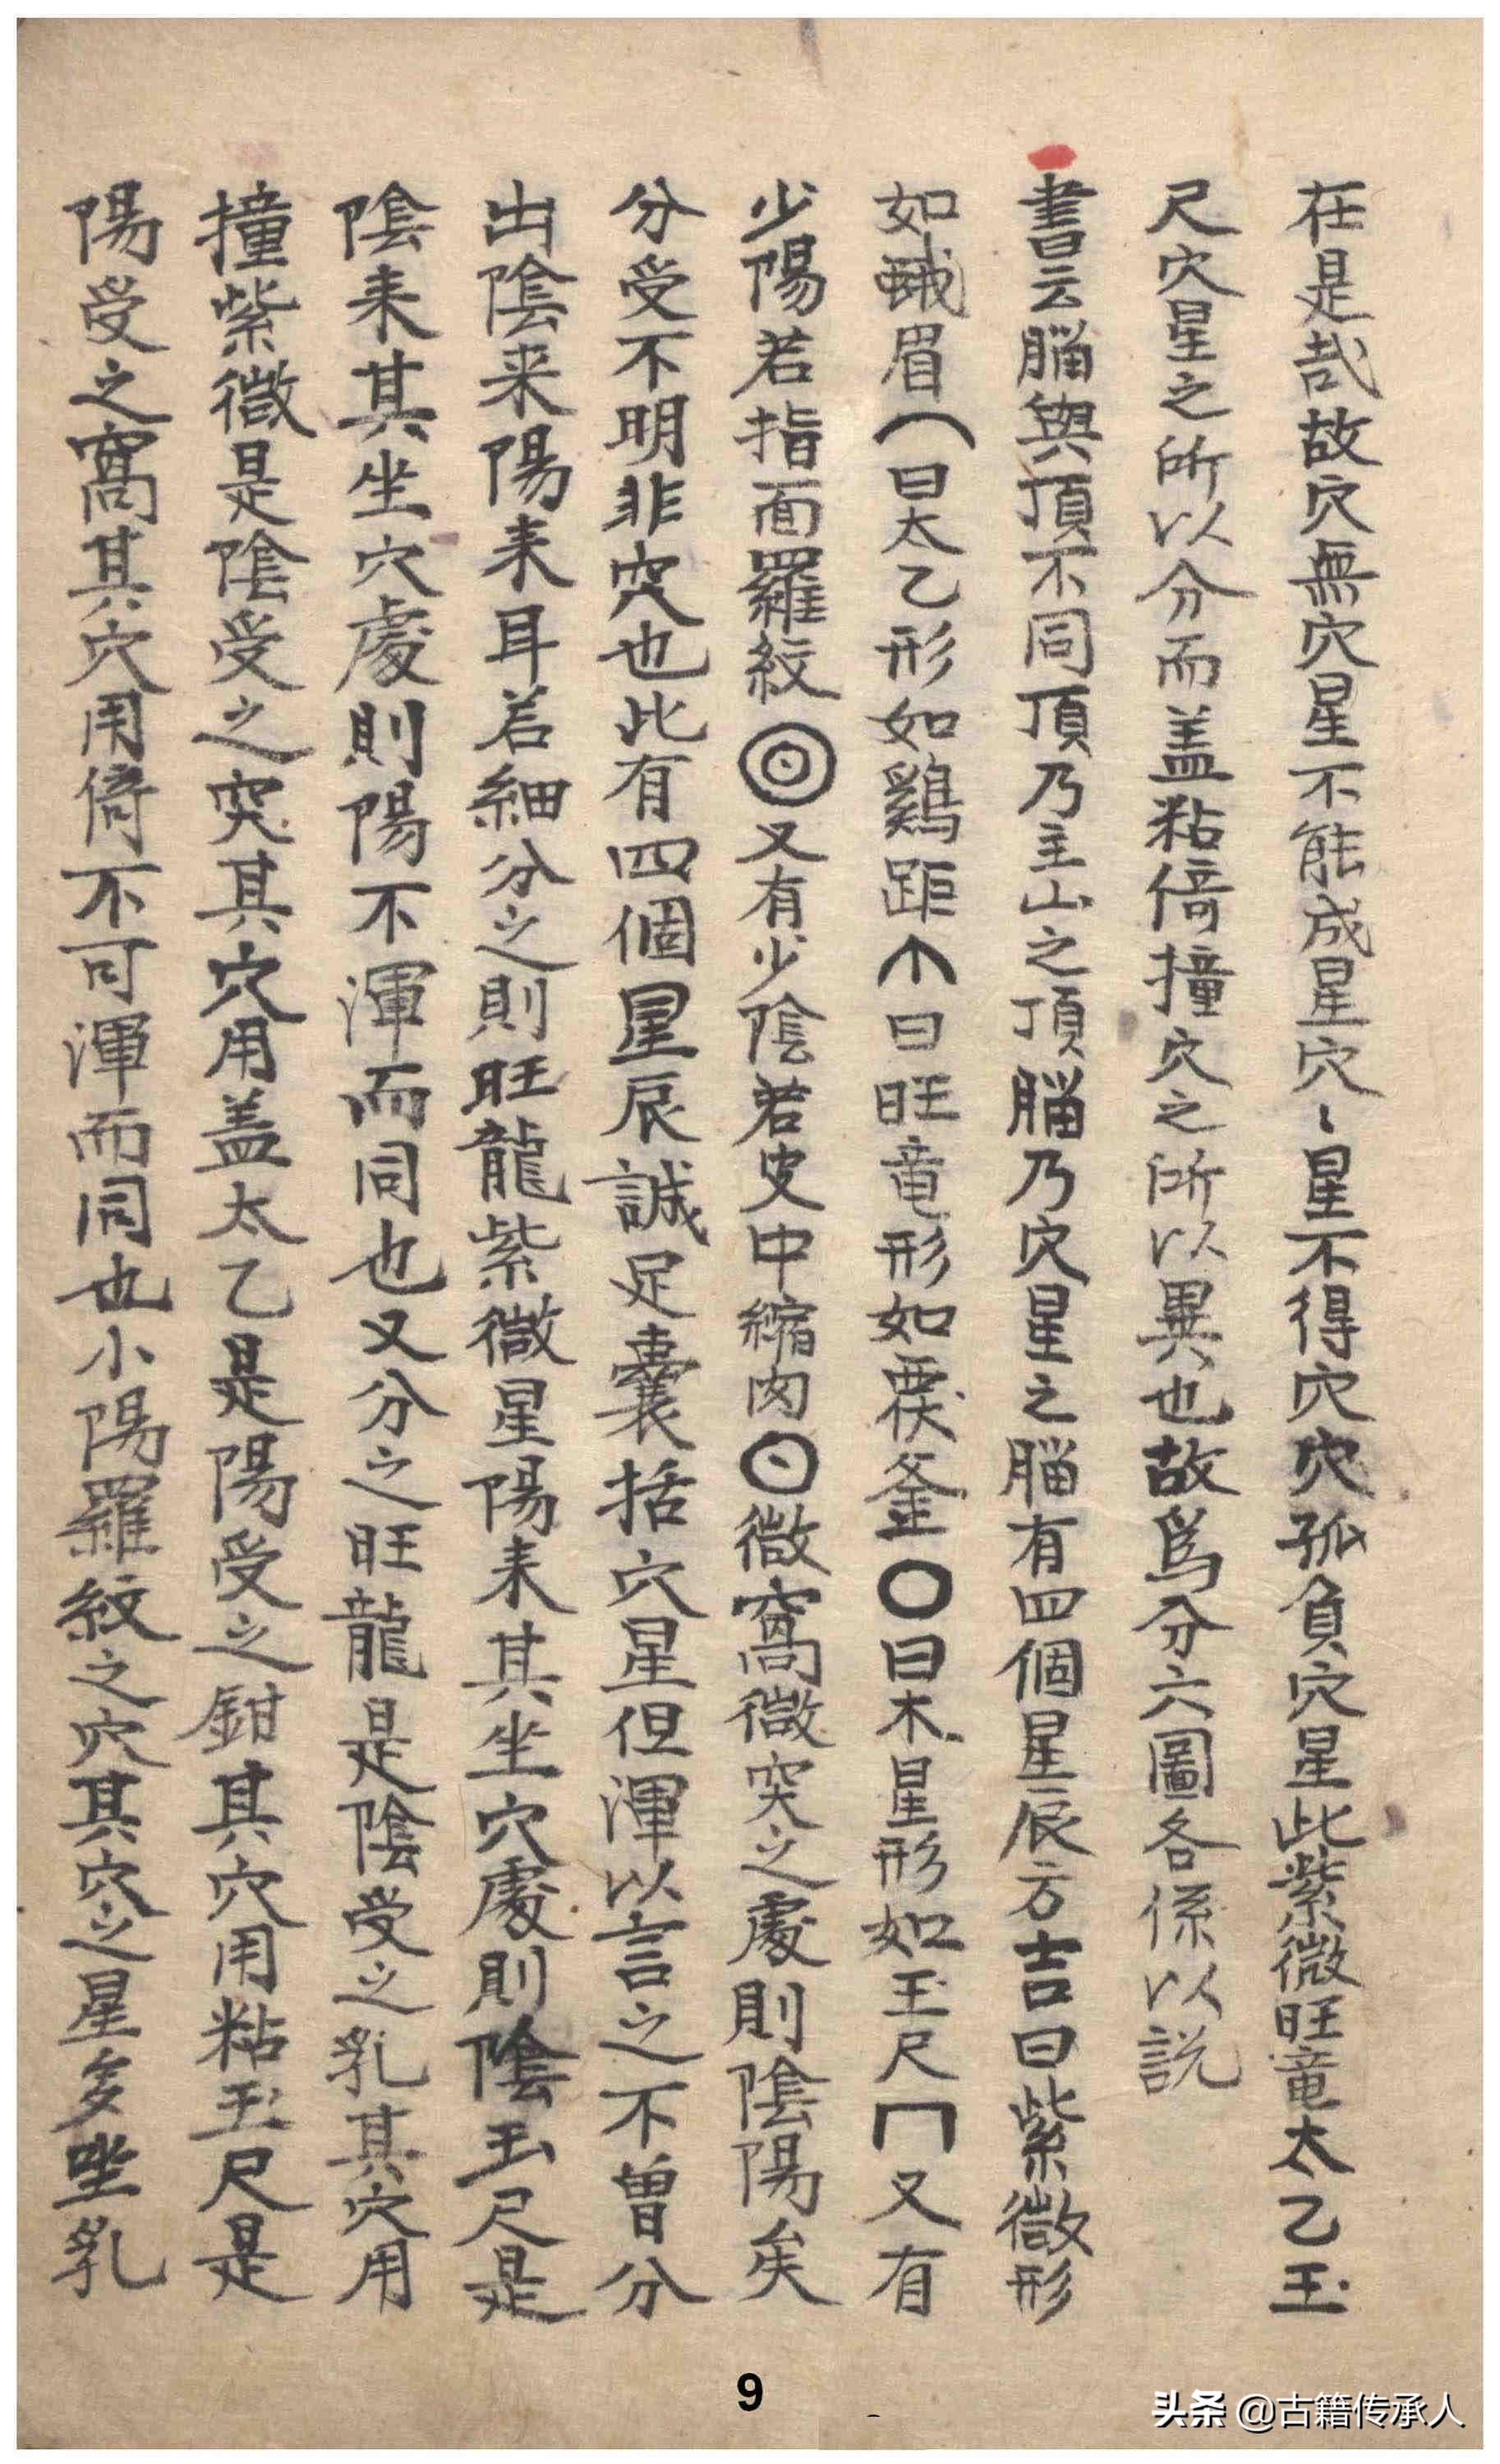 在是哉故穴無穴星不能成星穴〻星不得穴穴孤負穴星此紫微旺竜太乙玉
尺穴星之所以分而盖粘倚撞穴之所以異也故爲分六圖各係以説
書云腦與頂不同頂乃主山之頂腦乃穴星之腦有四個星辰方吉曰紫微形
如蛾眉曰太乙形如鷄距曰旺竜形如覆釜曰木星形如玉尺又有
少陽若指面羅紋又有少陰若中縮肉微窩微突之處則陰陽矣
分受不明非穴也此有四個星辰誠足囊括穴星但渾以言之不曽分
出陰来陽来耳若細分之則旺龍紫微星陽来其坐穴處則陰玉尺是
陰来其坐穴處則陽不渾而同也又分之旺龍是陰受之乳其穴用
撞紫微是陰受之突其穴用盖太乙是陽受之鉗其穴用粘玉尺是
陽受之窩其穴用倚不可渾而同也小陽羅紋之穴其穴之星多坐乳
9
头条 @古籍传承人